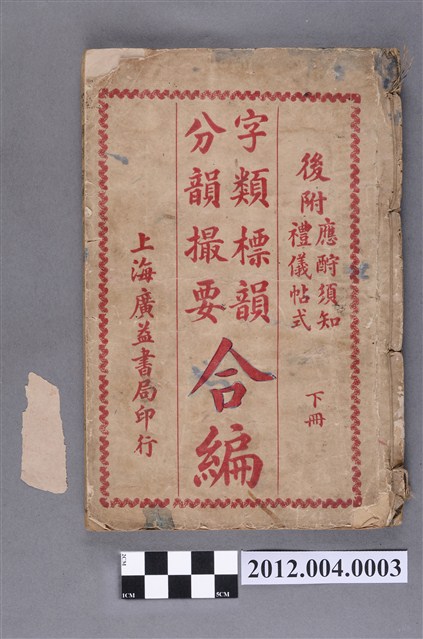 後附應酧須知
禮儀帖式
下冊
字類標韻
分韻撮要
合編
上海廣益書局印行
2CM
1CM
5CM
2012.004.0003